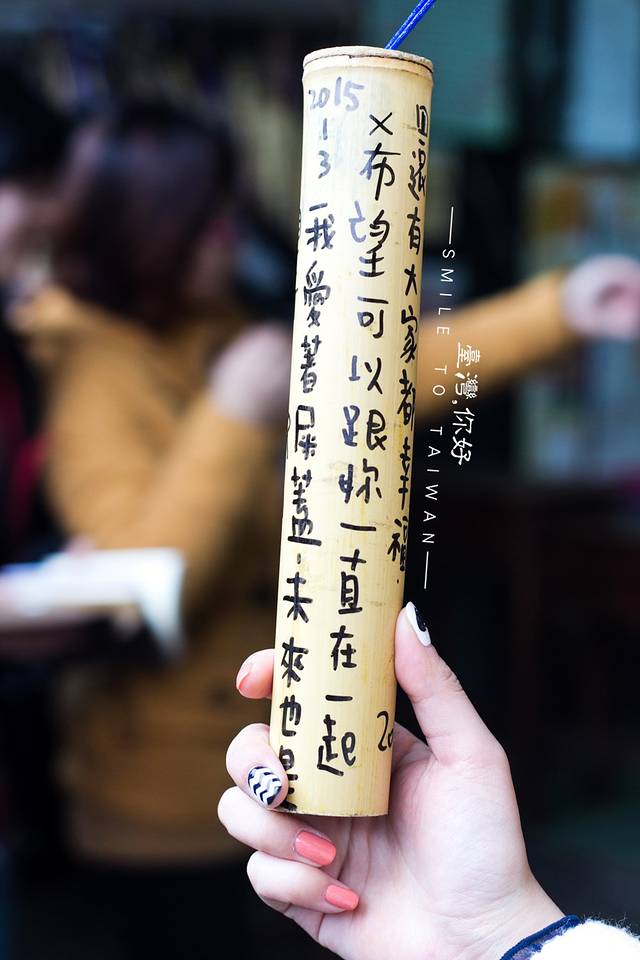 2015
1
3
我愛著屎蓋,未來也是
希望可以跟妳一直在一起
還有大家都幸福.
—SMILE TO TAIWAN—
臺灣,你好